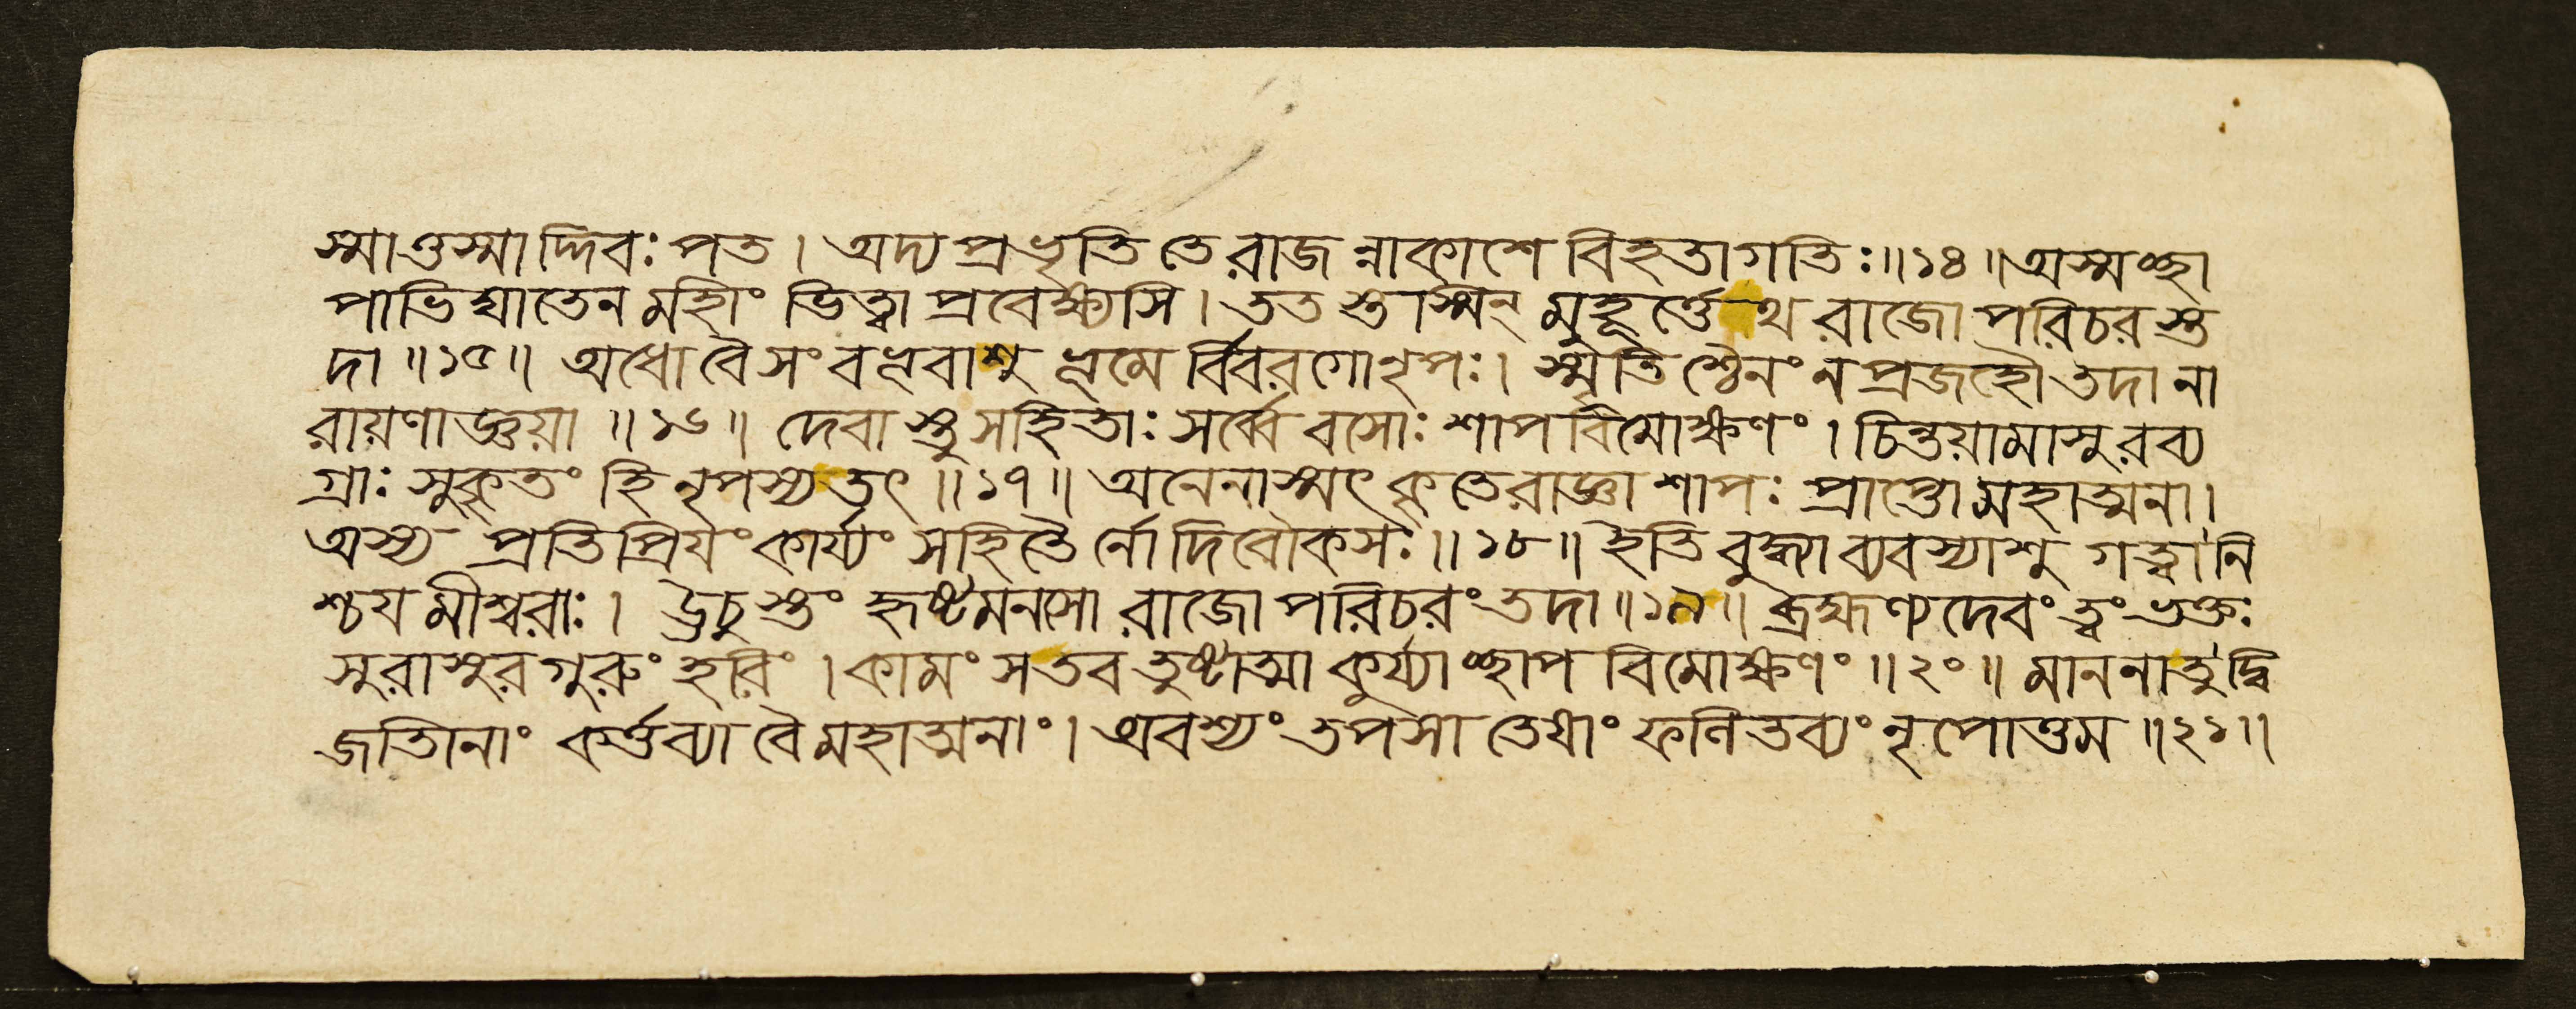 স্মাত্তস্মাদ্দিবঃ পত । অদ্য প্রভৃতি তে রাজন্নাকাশে বিহতাগতিঃ ॥ ১৪ ॥ অস্মচ্ছা
পাভিঘাতেন মহীং ভিত্ত্বা প্রবেক্ষ্যসি । ততস্তস্মিন্ মুহূর্ত্তেথ রাজোপরিচরস্ত
দা ॥ ১৫ ॥ অধো বৈ সংবভূবাশু ভূমের্বিবরগোনৃপঃ । স্মৃতিস্ত্বেনং ন প্রজহৌ তদা না
রায়ণাজ্ঞয়া ॥ ১৬ ॥ দেবাস্তু সহিতাঃ সর্ব্বে বসোঃ শাপবিমোক্ষণং । চিন্তয়ামাসুরব্য
গ্রাঃ সুকৃতং হি নৃপস্য তৎ ॥ ১৭ ॥ অনেনাস্মৎকৃতে রাজ্ঞা শাপঃ প্রাপ্তো মহাত্মনা ।
অস্য প্রতিপ্রিয়ং কার্য্যং সহিতৈর্নো দিবৌকসঃ ॥ ১৮ ॥ ইতি বুদ্ধ্যা ব্যবস্যাশু গত্বা নি
শ্চয়মীশ্বরাঃ । ঊচুস্তং হৃষ্টমনসো রাজোপরিচরং তদা ॥ ১৯ ॥ ব্রহ্মণ্যদেবং ত্বং ভক্তঃ
সুরাসুরগুরুং হরিং । কামং স তব তুষ্টাত্মা কুর্য্যাচ্ছাপবিমোক্ষণং ॥ ২০ ॥ মাননাতু দ্বি
জাতীনাং কর্ত্তব্যা বৈ মহাত্মনাং । অবশ্যং তপসা তেষাং ফলিতব্যং নৃপোত্তম ॥ ২১ ॥